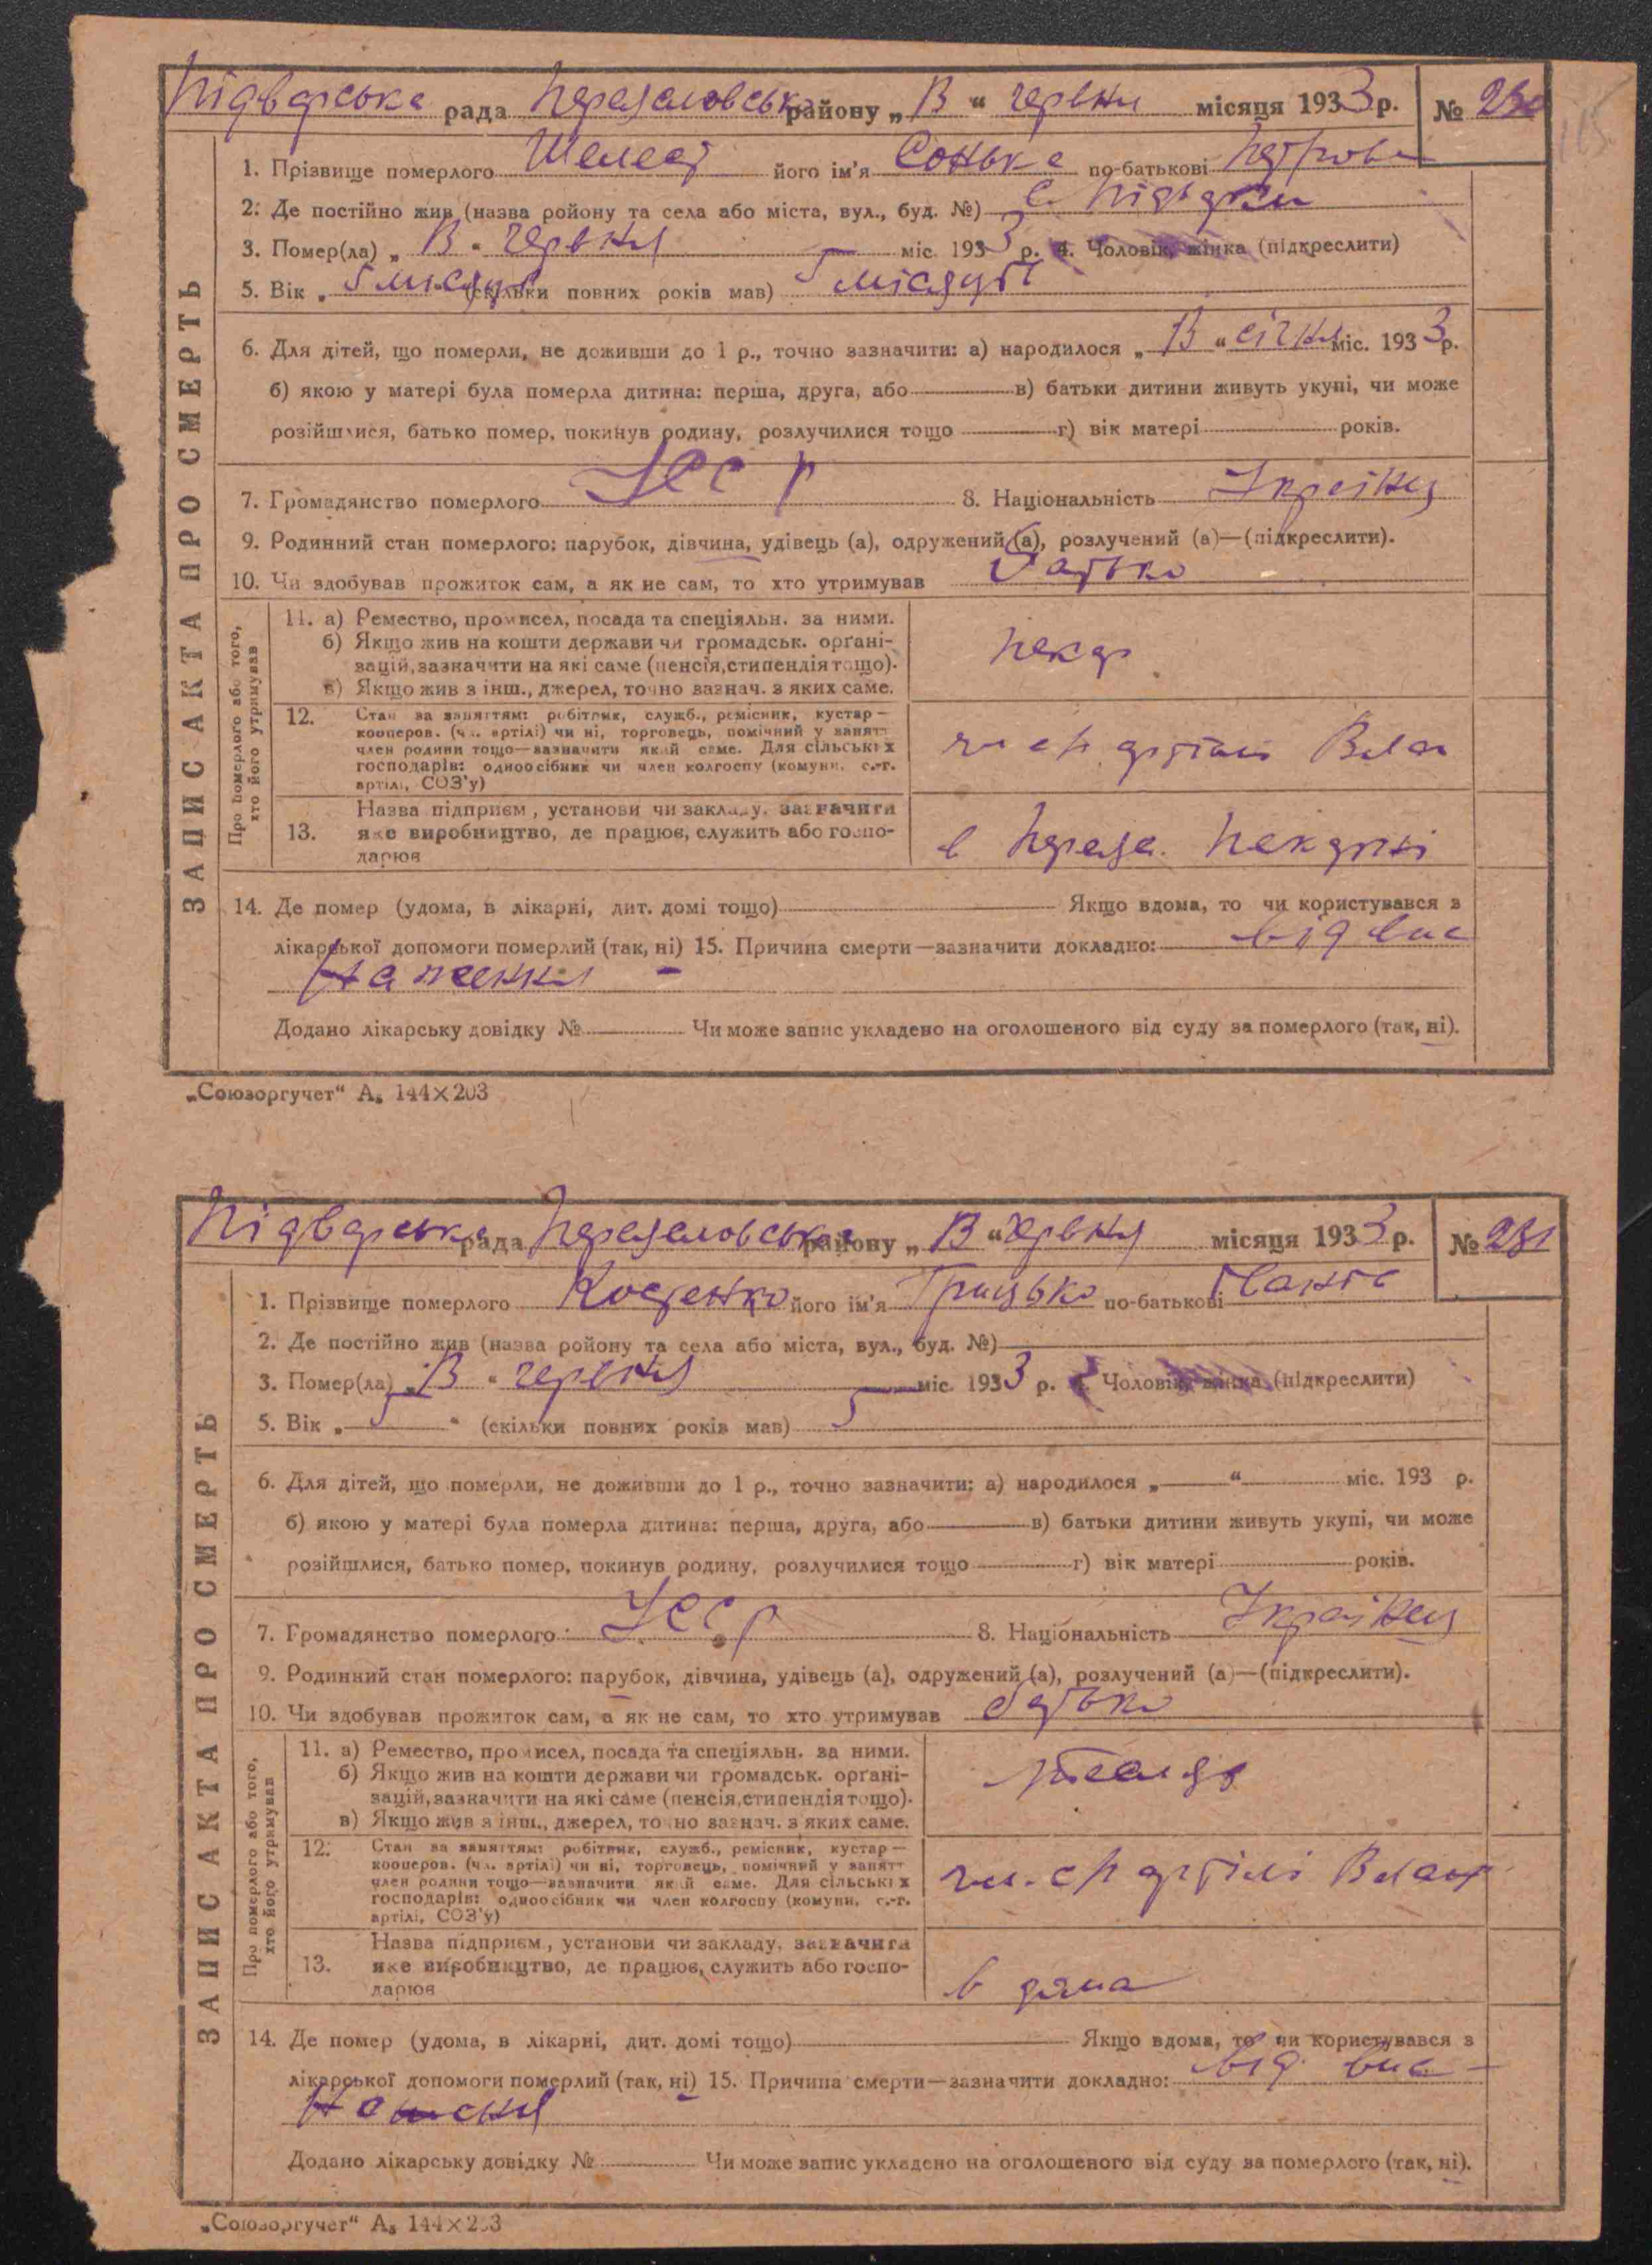 Підварська рада Переяславська району „13“ червня місяця 1933 р. № 230
115
ЗАПИС АКТА ПРО СМЕРТЬ
1. Прізвище померлого Шелест його ім'я Сонька по-батькові Петрова
2. Де постійно жив (назва ройону та села або міста, вул., буд. №) с. Підварки
3. Помер(ла) „13“ червня міс. 1933 р. 4. Чоловік, жінка (підкреслити)
5. Вік „5 місяців“ (скільки повних років мав) 5 місяців
6. Для дітей, що померли, не доживши до 1 р., точно зазначити: а) народилося „13“ січня міс. 1933 р.
б) якою у матері була померла дитина: перша, друга, або в) батьки дитини живуть укупі, чи може
розійшлися, батько помер, покинув родину, розлучилися тощо г) вік матері років.
7. Громадянство померлого УССР 8. Національність Українец
9. Родинний стан померлого: парубок, дівчина, удівець (а), одружений (а), розлучений (а)—(підкреслити).
10. Чи здобував прожиток сам, а як не сам, то хто утримував батько
Про померлого або того,
хто його утримував
11. а) Ремество, промисел, посада та спеціяльн. за ними.
б) Якщо жив на кошти держави чи громадськ. орґані-
зацій, зазначити на які саме (пенсія, стипендія тощо).
в) Якщо жив з інш., джерел, точно зазнач. з яких саме.
пекар
12. Стан за заняттям: робітник, служб., ремісник, кустар—
кооперов. (чл. артілі) чи ні, торговець, помічний у занятт
член родини тощо—зазначити який саме. Для сільських
господарів: одноосібник чи член колгоспу (комуни, с.-г.
артілі, СОЗ'у)
артілі
13. Назва підприєм, установи чи закладу, зазначити
яке виробництво, де працює, служить або госпо-
дарює
в Перея. Пекарні
14. Де помер (удома, в лікарні, дит. домі тощо) Якщо вдома, то чи користувався з
лікарської допомоги померлий (так, ні) 15. Причина смерти—зазначити докладно: від вис
наження
Додано лікарську довідку № Чи може запис укладено на оголошеного від суду за померлого (так, ні).
„Союзоргучет“ А₅ 144×203
Підварська рада Переяславська району „13“ червня місяця 1933 р. № 231
ЗАПИС АКТА ПРО СМЕРТЬ
1. Прізвище померлого Костенко його ім'я Грицько по-батькові
2. Де постійно жив (назва ройону та села або міста, вул., буд. №)
3. Помер(ла) „13“ червня міс. 1933 р. 4. Чоловік, жінка (підкреслити)
5. Вік „5“ (скільки повних років мав) 5
6. Для дітей, що померли, не доживши до 1 р., точно зазначити: а) народилося „ “ міс. 193 р.
б) якою у матері була померла дитина: перша, друга, або в) батьки дитини живуть укупі, чи може
розійшлися, батько помер, покинув родину, розлучилися тощо г) вік матері років.
7. Громадянство померлого УССР 8. Національність Українец
9. Родинний стан померлого: парубок, дівчина, удівець (а), одружений (а), розлучений (а)—(підкреслити).
10. Чи здобував прожиток сам, а як не сам, то хто утримував батько
Про померлого або того,
хто його утримував
11. а) Ремество, промисел, посада та спеціяльн. за ними.
б) Якщо жив на кошти держави чи громадськ. орґані-
зацій, зазначити на які саме (пенсія, стипендія тощо).
в) Якщо жив з інш., джерел, точно зазнач. з яких саме.
12. Стан за заняттям: робітник, служб., ремісник, кустар—
кооперов. (чл. артілі) чи ні, торговець, помічний у занятт
член родини тощо—зазначити який саме. Для сільських
господарів: одноосібник чи член колгоспу (комуни, с.-г.
артілі, СОЗ'у)
чл. с/г артілі
13. Назва підприєм, установи чи закладу, зазначити
яке виробництво, де працює, служить або госпо-
дарює
14. Де помер (удома, в лікарні, дит. домі тощо) Якщо вдома, то чи користувався з
лікарської допомоги померлий (так, ні) 15. Причина смерти—зазначити докладно: від вис-
наження
Додано лікарську довідку № Чи може запис укладено на оголошеного від суду за померлого (так, ні).
„Союзоргучет“ А₅ 144×203